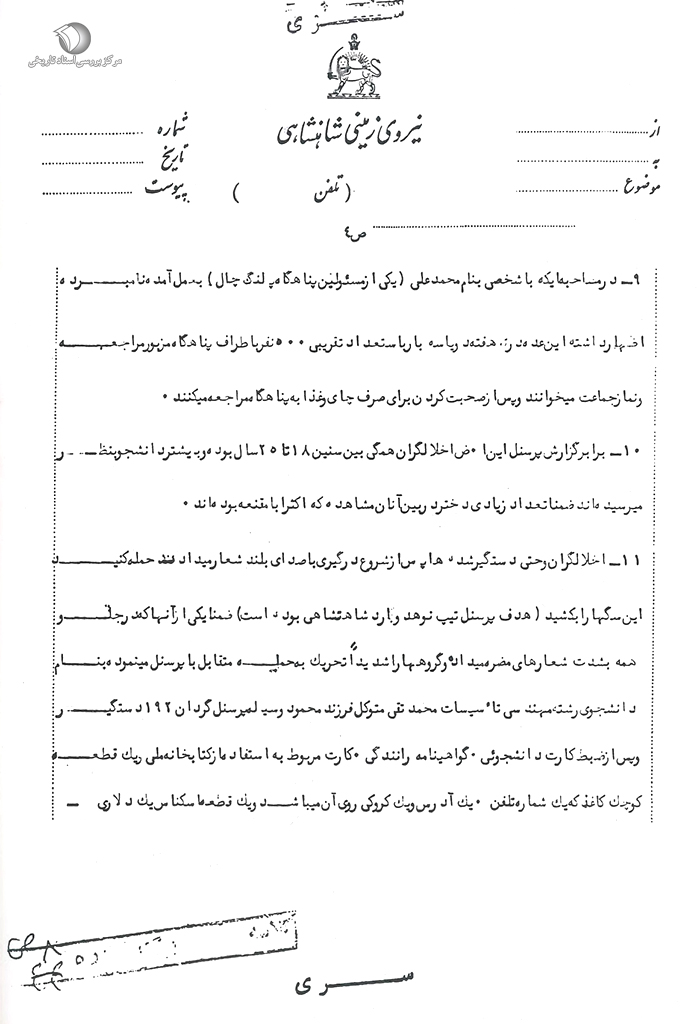 سری
مرکز بررسی اسناد تاریخی
نیروی زمینی شاهنشاهی
از
به
موضوع
شماره
تاریخ
پیوست
(تلفن )
ص٤
٩ـ در مصاحبه‌ایکه با شخصی بنام محمدعلی (یکی از مسئولین پناهگاه پلنگ چال) بعمل آمده نامبرده
اظهار داشته این عده در هفته دو یا سه بار با تعداد تقریبی ٥٠٠ نفر باطراف پناهگاه مزبور مراجعه
ونماز جماعت میخوانند وپس از صحبت کردن برای صرف چای وغذا به پناهگاه مراجعه میکنند ٠
١٠ـ برابر گزارش پرسنل این اخلالگران همگی بین سنین ١٨ تا ٢٥ سال بوده وبیشتر دانشجو بنظر
میرسیده‌اند ضمنا تعداد زیادی دختر دربین آنان مشاهده که اکثرا با مقنعه بوده‌اند ٠
١١ـ اخلالگران وحتی دستگیرشده‌ها پس از شروع درگیری با صدای بلند شعار میدادند حمله کنید
این سگها را بکشید (هدف پرسنل تیپ نوهد وگارد شاهنشاهی بوده است) ضمنا یکی از آنها که در جلو
همه بشدت شعارهای مضره میداد وگروهها را شدیداً تحریک به حمله متقابل با پرسنل مینمود بنام
دانشجوی رشته مهندسی تأسیسات محمد تقی متوکل فرزند محمود وسیله پرسنل گردان ١٩٢ دستگیر
وپس از ضبط کارت دانشجوئی ٠ گواهینامه رانندگی ٠ کارت مربوط به استفاده از کتابخانه ملی ویک قطعه
کوچک کاغذ که یک شماره تلفن ٠ یک آدرس ویک کروکی روی آن میباشد ویک قطعه اسکناس یک دلاری ـ
سری